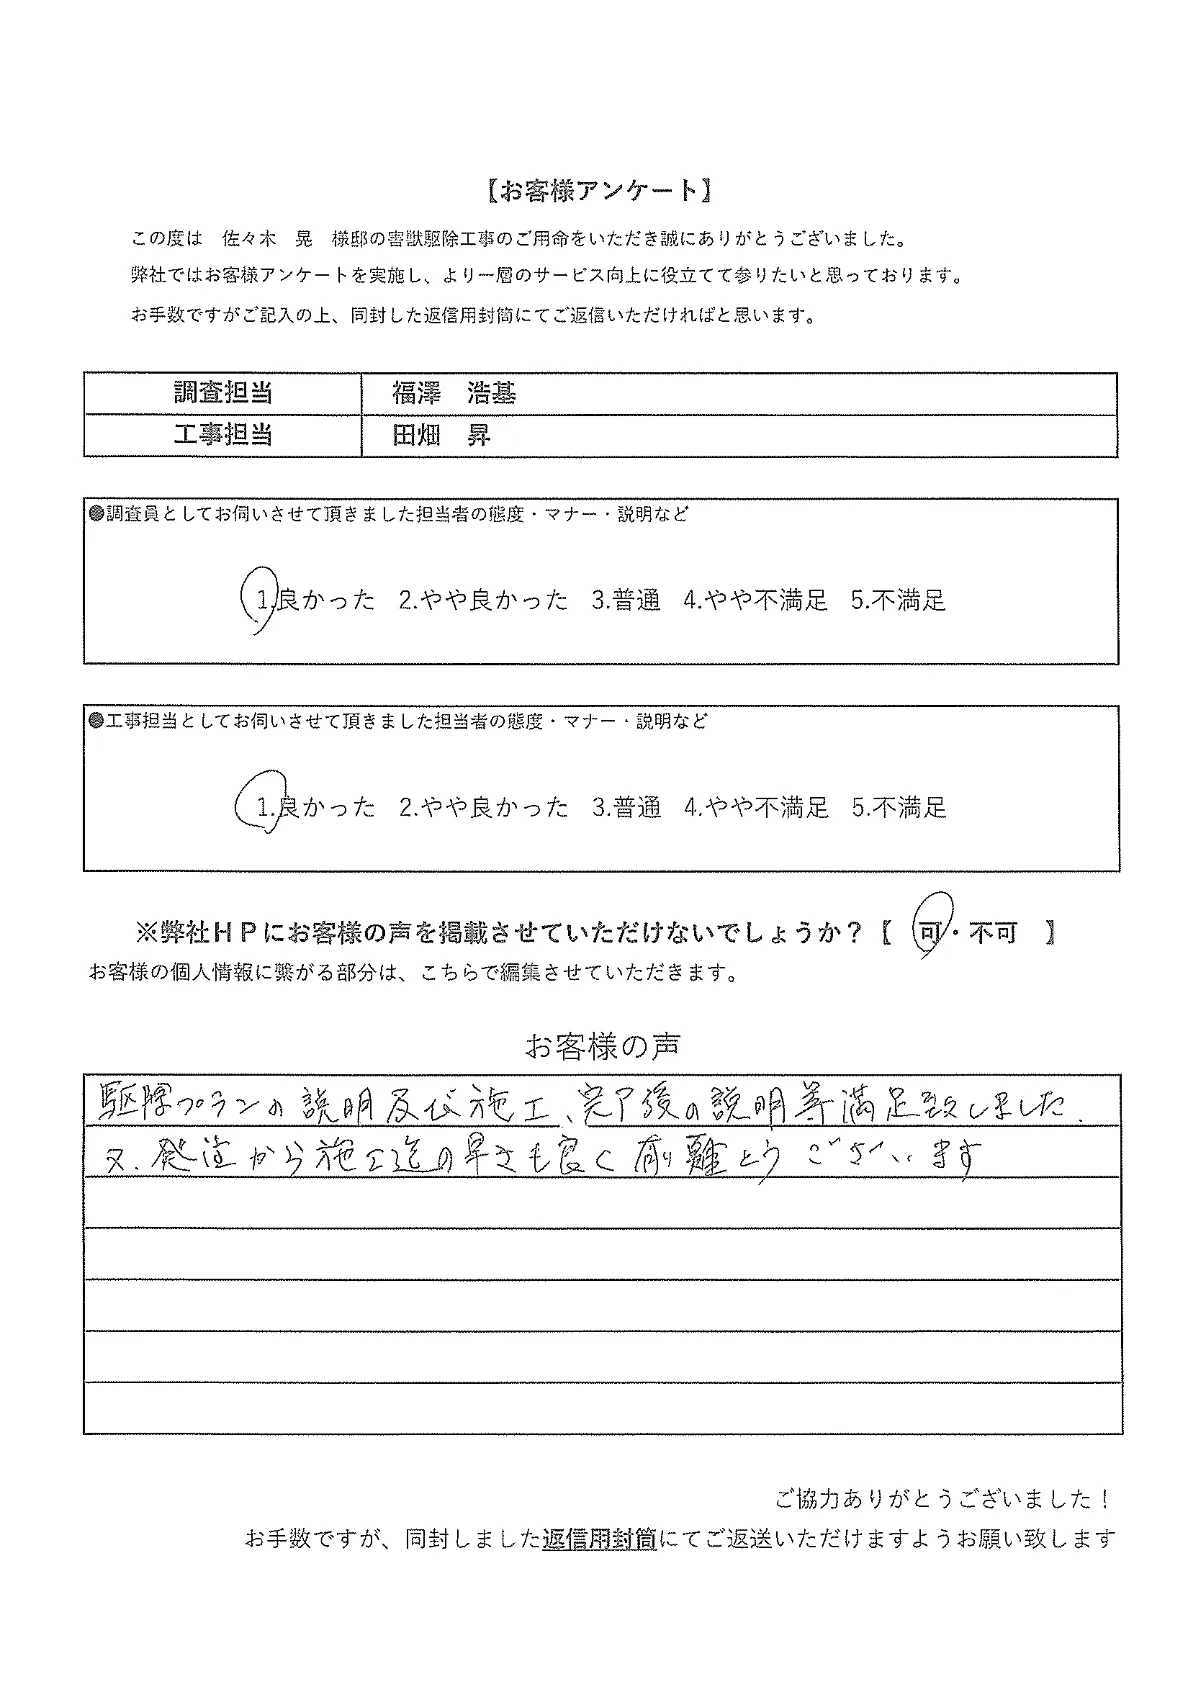 【お客様アンケート】
この度は　佐々木　晃　様邸の害獣駆除工事のご用命をいただき誠にありがとうございました。
弊社ではお客様アンケートを実施し、より一層のサービス向上に役立てて参りたいと思っております。
お手数ですがご記入の上、同封した返信用封筒にてご返信いただければと思います。
調査担当　福澤　浩基
工事担当　田畑　昇
●調査員としてお伺いさせて頂きました担当者の態度・マナー・説明など
1.良かった　2.やや良かった　3.普通　4.やや不満足　5.不満足
●工事担当としてお伺いさせて頂きました担当者の態度・マナー・説明など
1.良かった　2.やや良かった　3.普通　4.やや不満足　5.不満足
※弊社ＨＰにお客様の声を掲載させていただけないでしょうか？【　可・不可　】
お客様の個人情報に繋がる部分は、こちらで編集させていただきます。
お客様の声
駆除プランの説明及び施工、完了後の説明等満足致しました.
又、発注から施工迄の早さも良く有り難とうございます
ご協力ありがとうございました！
お手数ですが、同封しました返信用封筒にてご返送いただけますようお願い致します